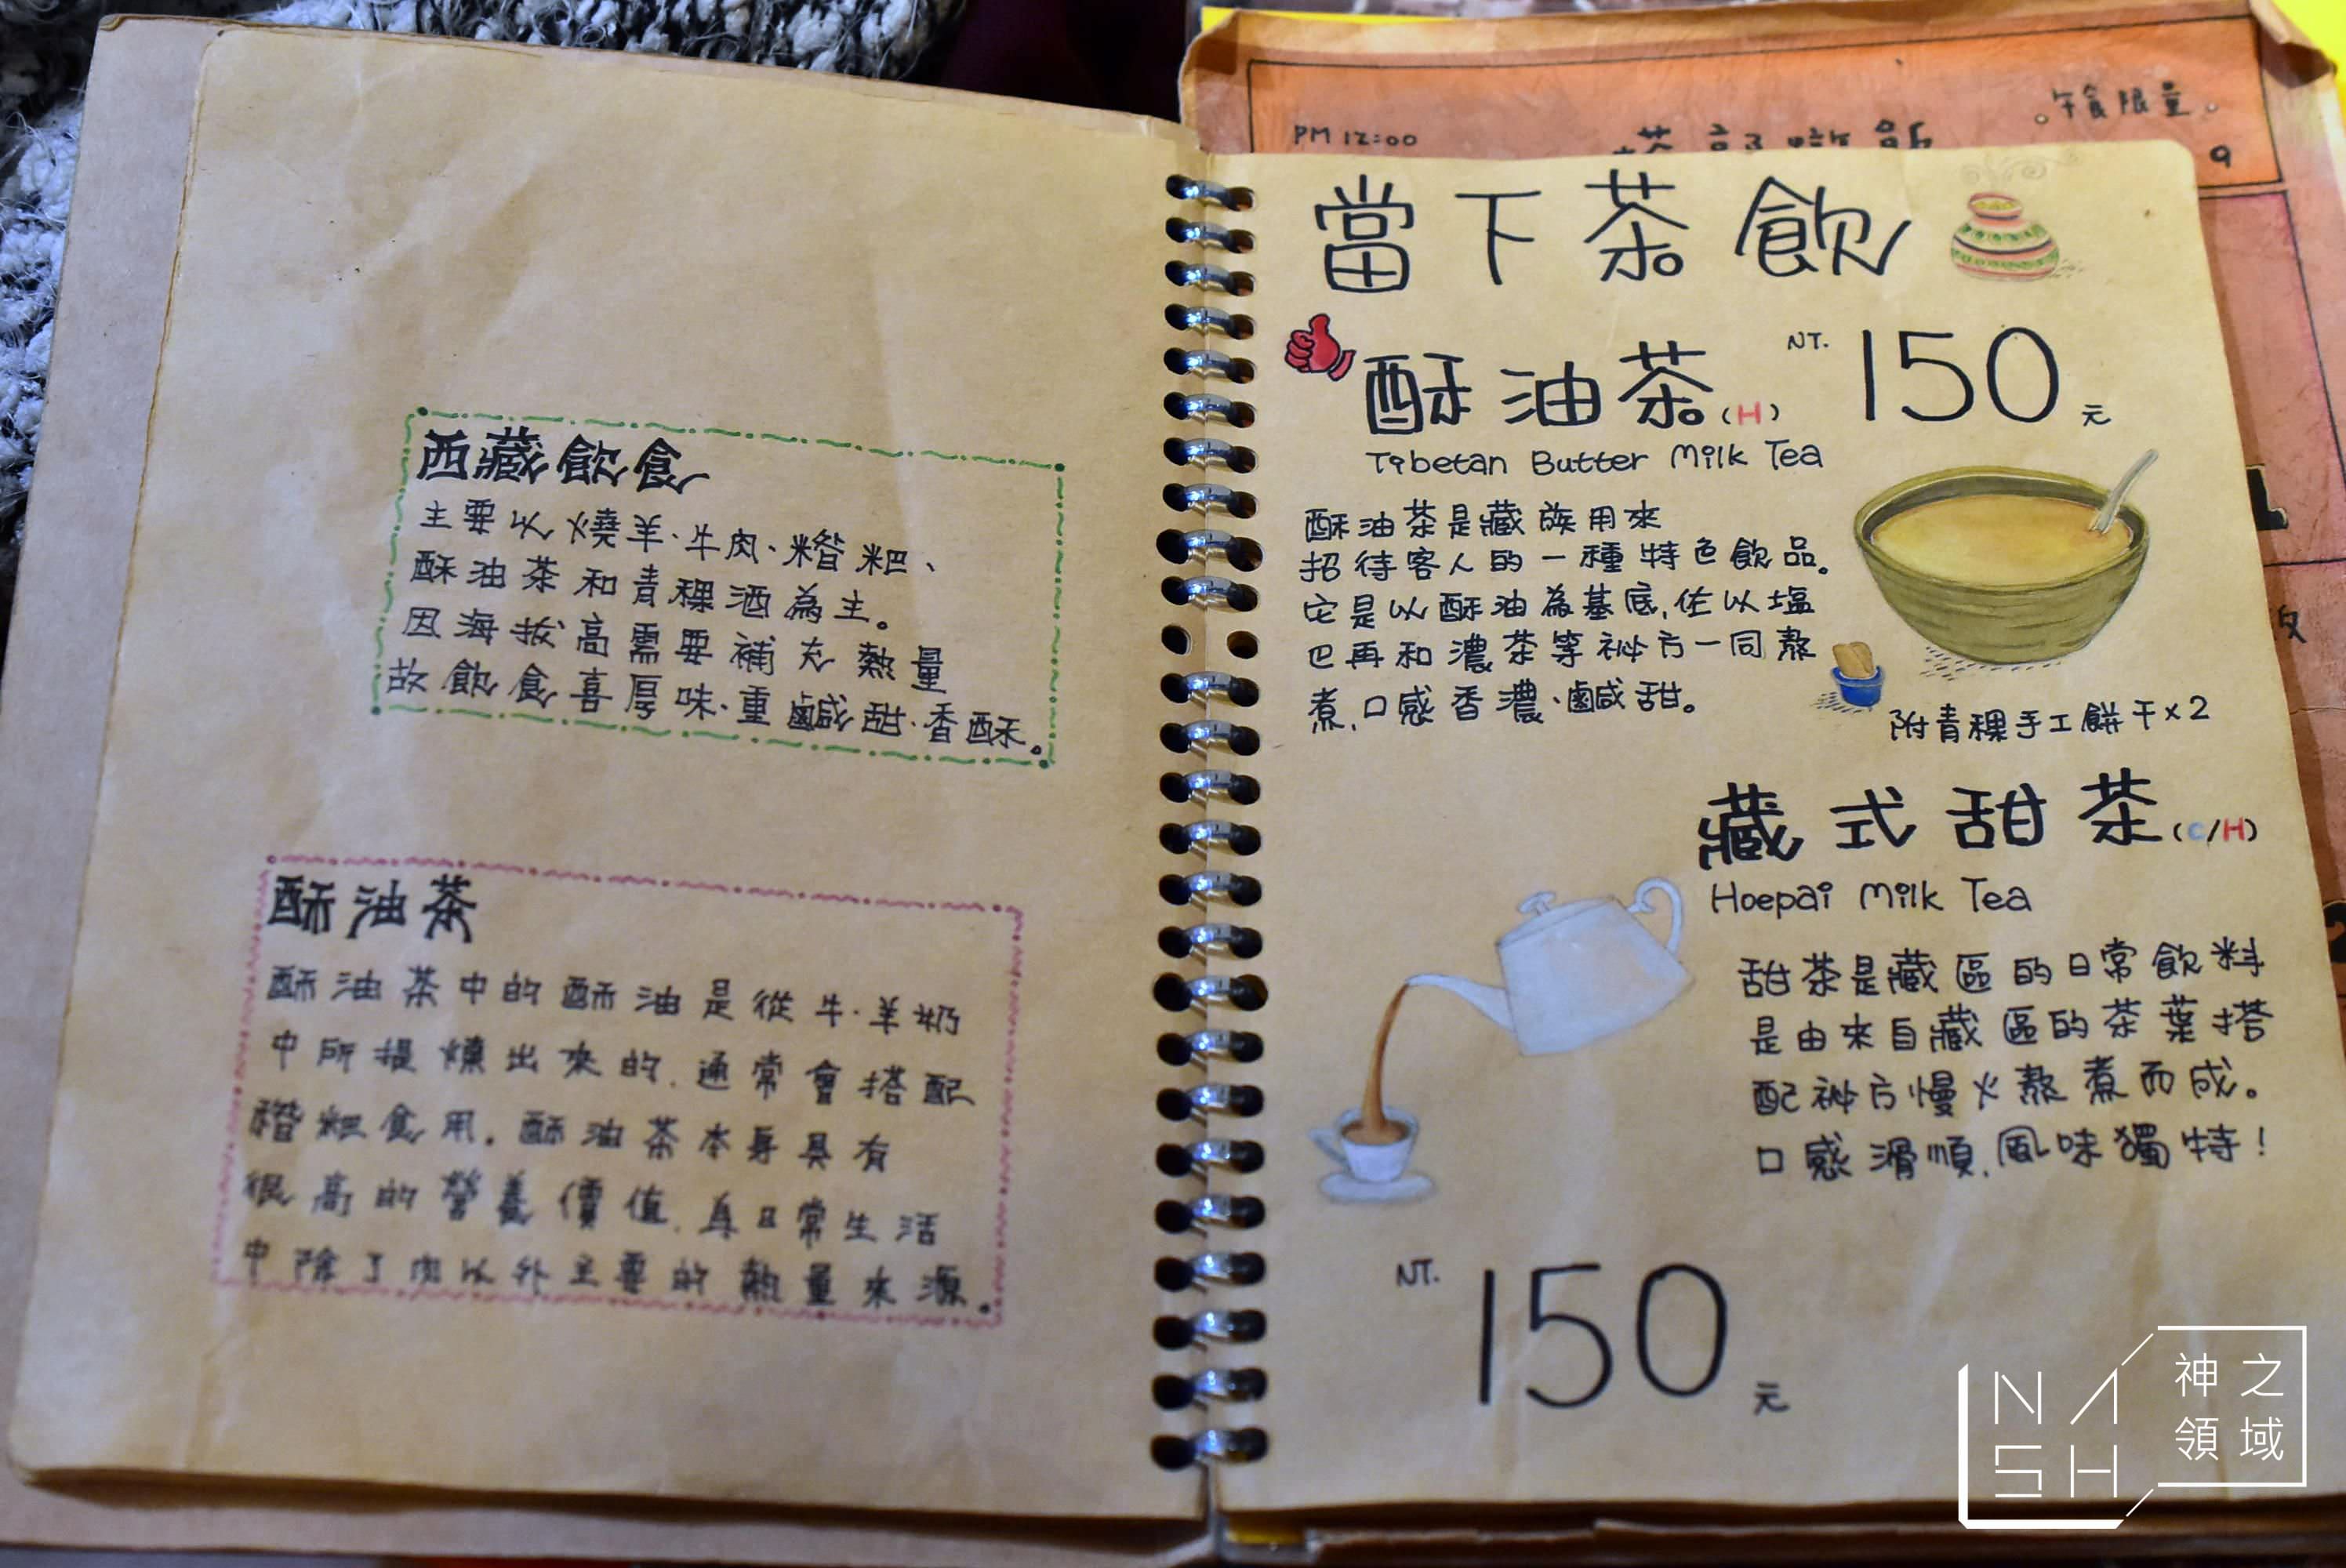 西藏飲食
主要以燒羊、牛肉、糌粑、
酥油茶和青稞酒為主。
因海拔高需要補充熱量
故飲食喜厚味、重鹹甜、香酥。
酥油茶
酥油茶中的酥油是從牛、羊奶
中所提煉出來的,通常會搭配
糌粑食用。酥油茶本身具有
很高的營養價值,為日常生活
中除了肉以外主要的熱量來源。
PM 12:00
午食限量
9
當下茶飲
酥油茶(H) NT. 150元
Tibetan Butter Milk Tea
酥油茶是藏族用來
招待客人的一種特色飲品。
它是以酥油為基底,佐以塩
巴再和濃茶等祕方一同熬
煮,口感香濃、鹹甜。
附青稞手工餅干x2
藏式甜茶(C/H)
Hoepai Milk Tea
甜茶是藏區的日常飲料
是由來自藏區的茶葉搭
配祕方慢火熬煮而成。
口感滑順,風味獨特!
NT. 150元
NASH
神之領域